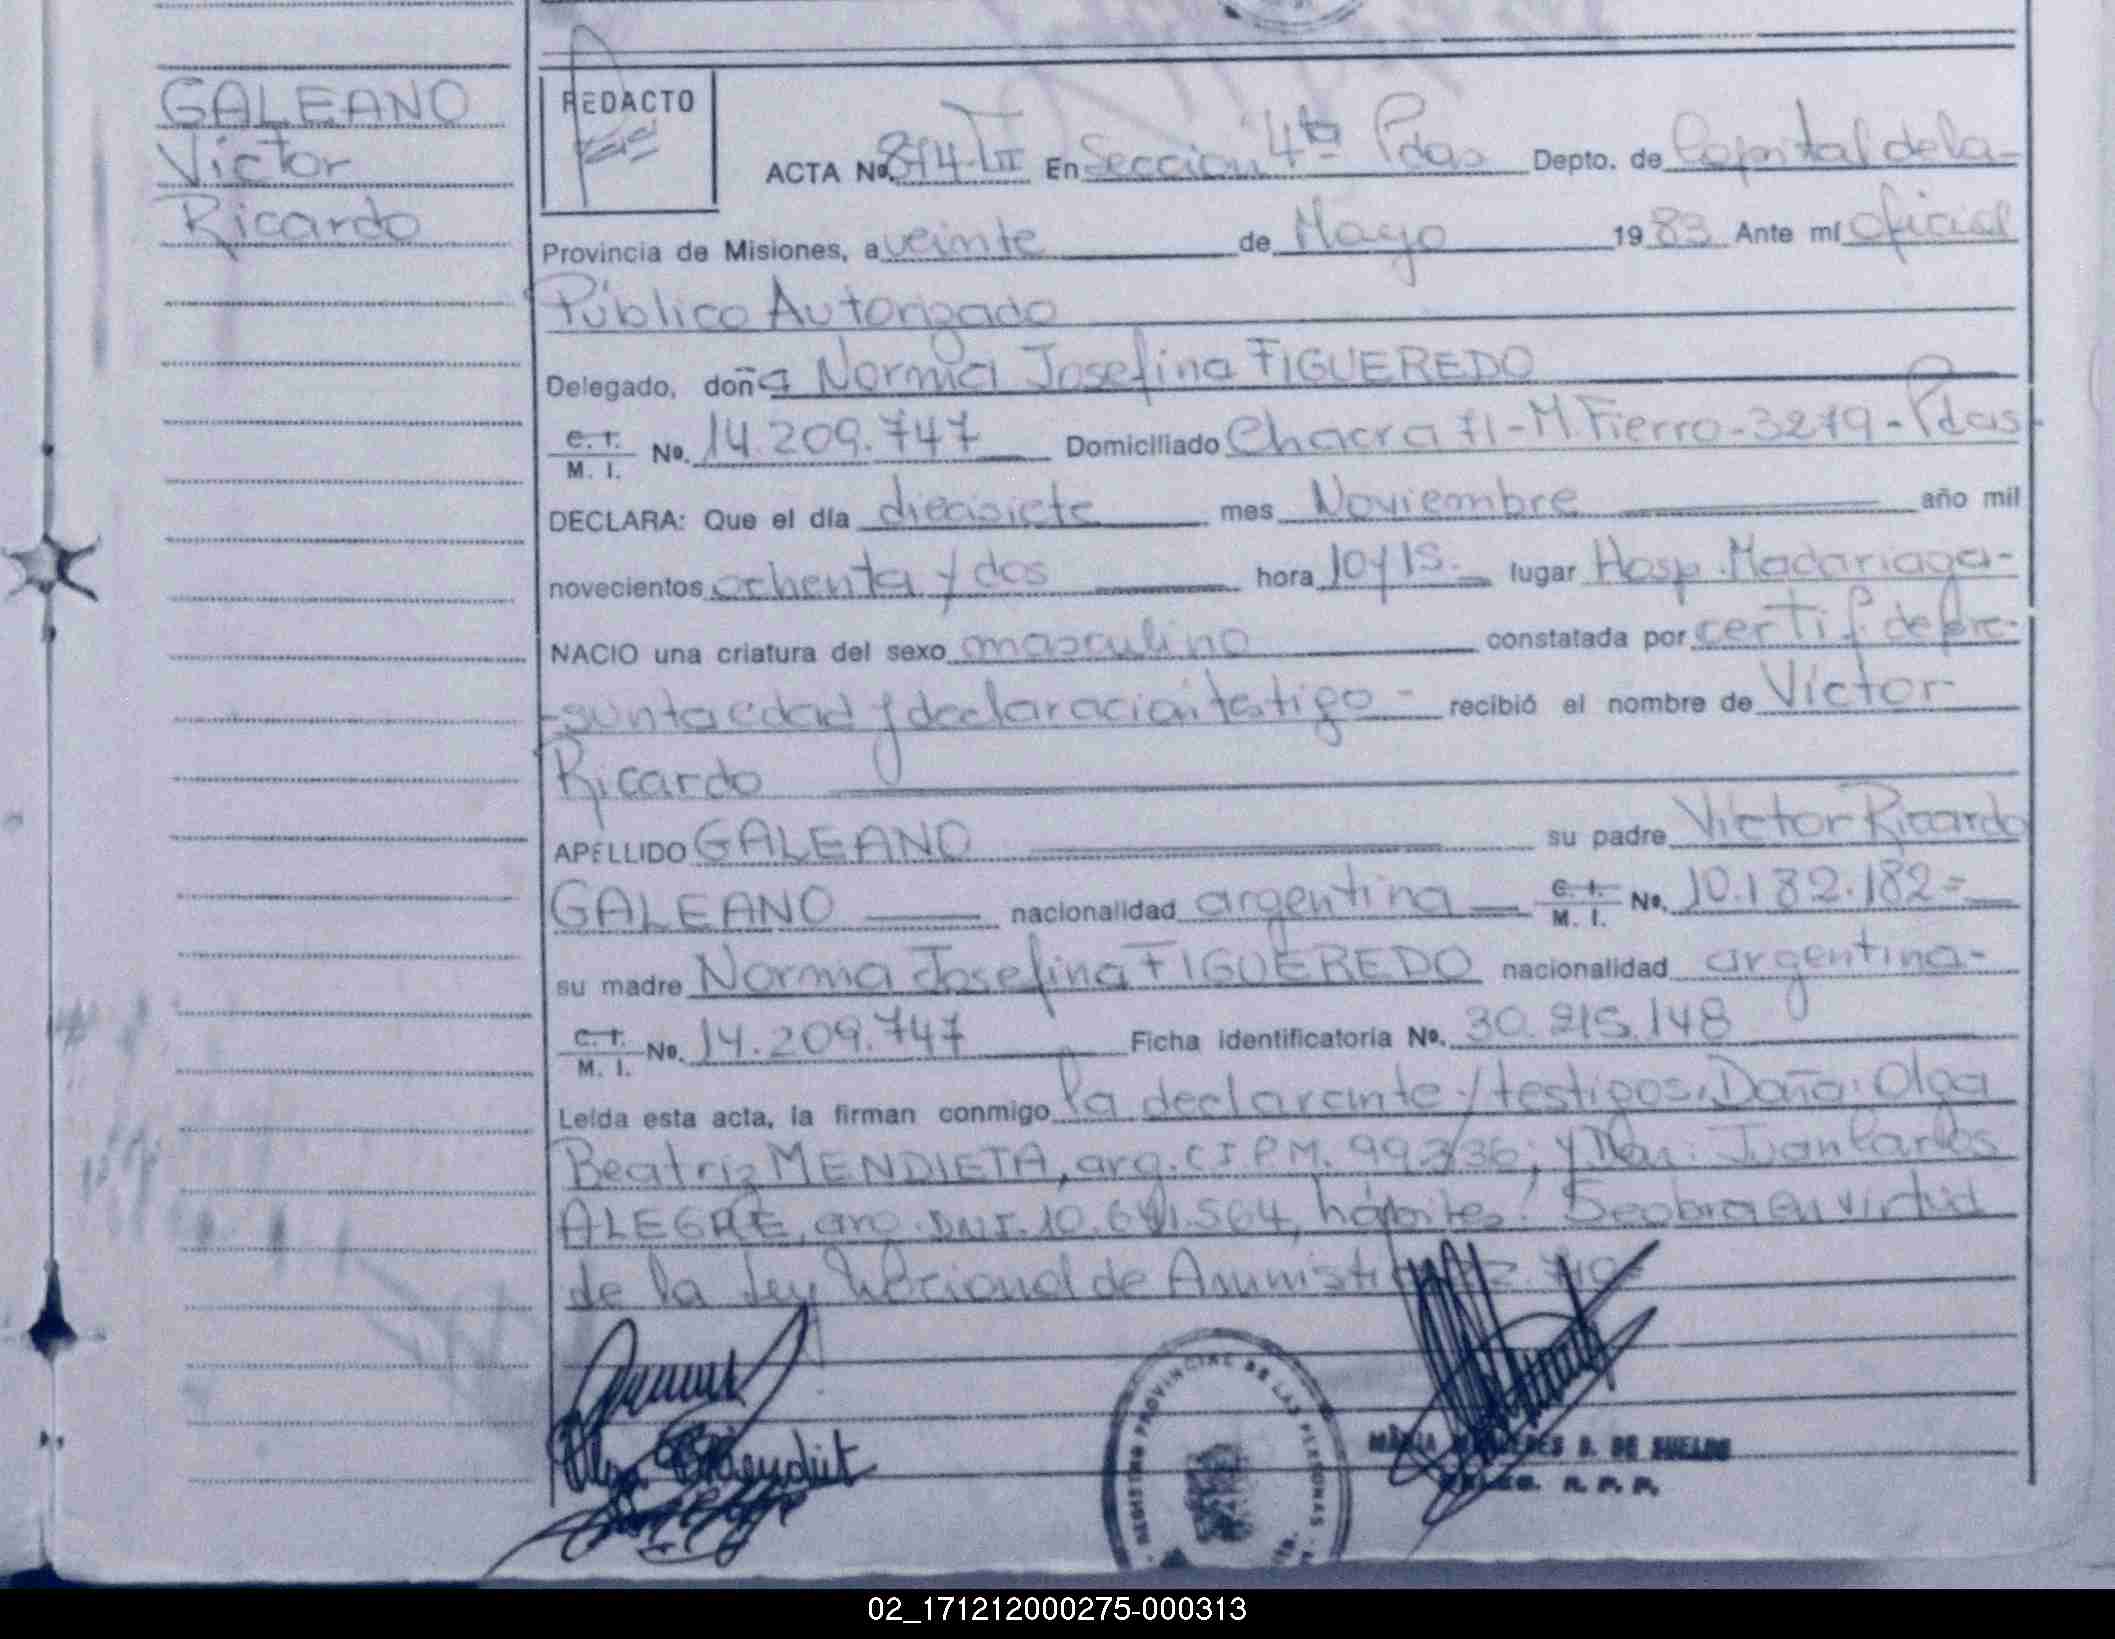 GALEANO
Victor
Ricardo
REDACTO
ACTA Nº. 814-TII En Sección 4ta Pdas Depto. de Capital de la-
Provincia de Misiones, a veinte de Mayo 1983 Ante mí oficial
Público Autorizado
Delegado, doña Norma Josefina FIGUEREDO
C. I.
M. I. Nº. 14.209.747 Domiciliado Chacra 71-M Fierro-3279-Pdas
DECLARA: Que el día diecisiete mes Noviembre año mil
novecientos ochenta y dos hora 10y15. lugar Hosp. Madariaga-
NACIO una criatura del sexo masculino constatada por certif. de pre-
-sunta edad y declaración testigo - recibió el nombre de Víctor
Ricardo
APELLIDO GALEANO su padre Victor Ricardo
GALEANO nacionalidad argentina C. I.
M. I. Nº. 10.182.182=
su madre Norma Josefina FIGUEREDO nacionalidad argentina-
C. I.
M. I. Nº. 14.209.747 Ficha identificatoria Nº. 30.215.148
Leída esta acta, la firman conmigo la declarante y testigos, Doña: Olga
Beatriz MENDIETA, arg. C I P M. 99336; y Don: Juan Carlos
ALEGRE, arg. DNI. 10.691.564, hábiles: Se obra en virtud
de la Ley Nacional de Amnistía
REGISTRO PROVINCIAL DE LAS PERSONAS
MARIA MERCEDES B. DE SUELDO
R. P. P.
02_171212000275-000313